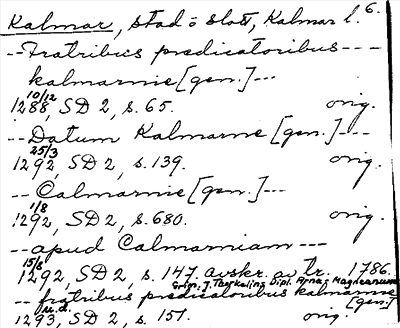 Kalmar, stad o slott, Kalmar l. 6.
-- Fratribus predicatoribus ---
kalmarnie [gen.] ---
10/12
1288, SD 2, s. 65. orig.
-- Datum Kalmarne [gen.] ---
25/3
1292, SD 2, s. 139. orig.
-- Calmarnie [gen.] ---
1/8
1292, SD 2, s. 680. orig.
-- apud Calmarniam ---
15/8
1292, SD 2, s. 147. avskr. av tr. 1786.
Grim: J. Thorkelin, Dipl. Arna Magnæanum
-- fratribus predicatoribus kalmarnie [gen.]
u.d.
1293, SD 2, s. 151. orig.